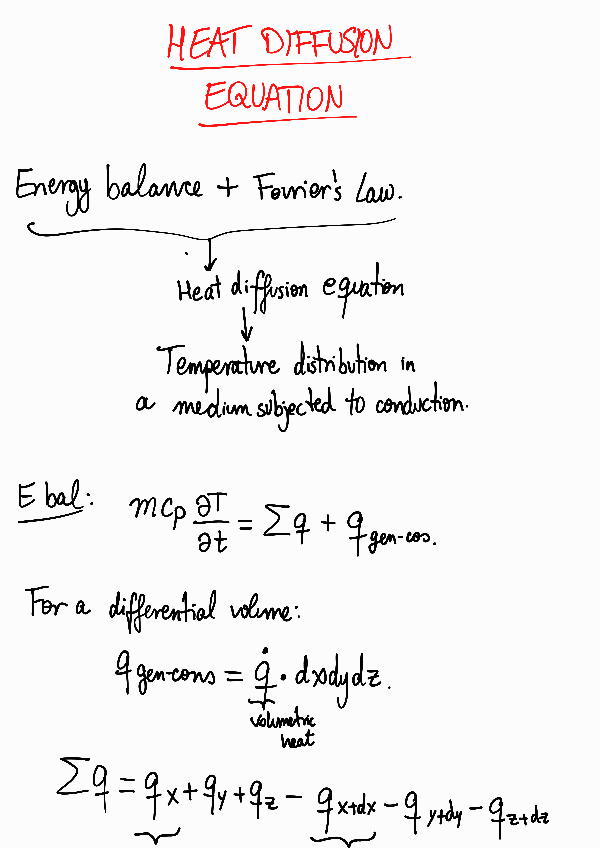 HEAT DIFFUSION
EQUATION
Energy balance + Fourier's Law.
Heat diffusion equation
Temperature distribution in
a medium subjected to conduction.
E bal: mcp ∂T/∂t = Σq + q gen-cos.
For a differential volume:
q gen-cons = q̇ · dxdydz.
volumetric
heat
Σq = qx + qy + qz − qx+dx − qy+dy − qz+dz